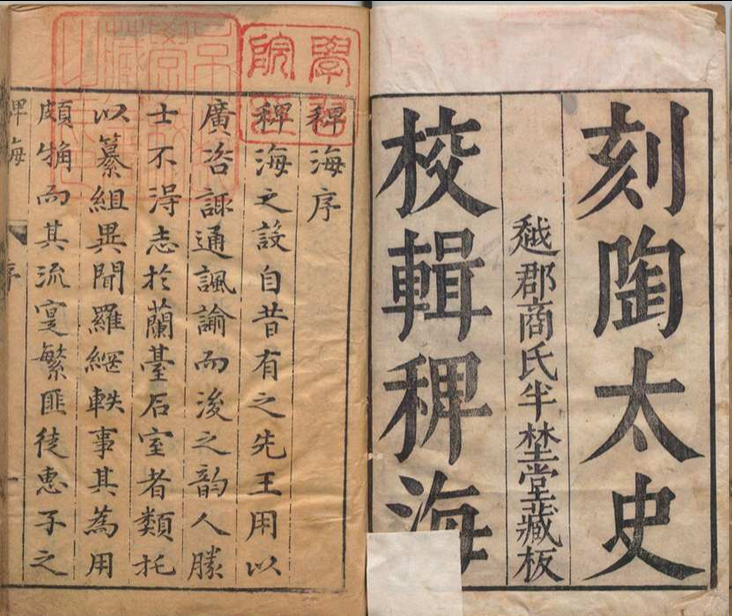 刻陶太史
越郡商氏半埜堂藏板
校輯稗海
稗海序
稗海之設自昔有之先王用以
廣咨諏通諷諭而後之韵人勝
士不淂志於蘭臺石室者類托
以纂組異聞羅網軼事其為用
頗觕而其流寔繁匪徒惠子之
稗海 序 一